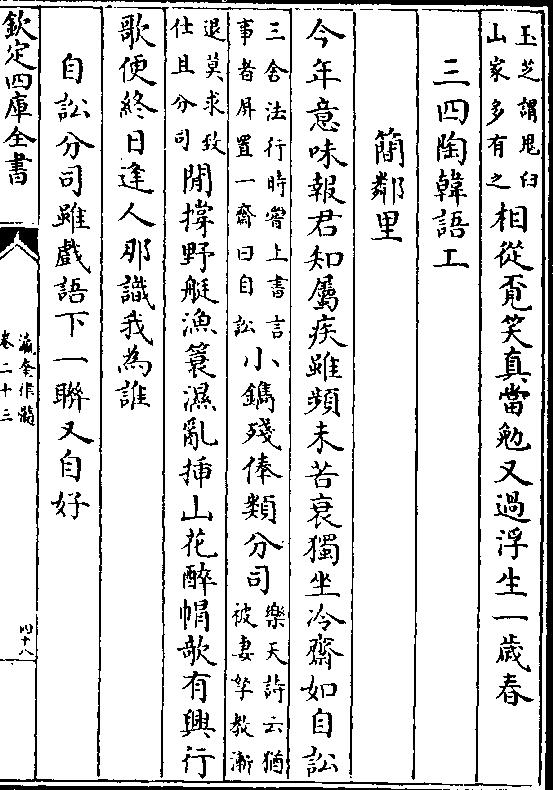 玉芝謂凫臼
山家多有之
相從覔笑真當勉又過浮生一歲春
三四陶韓語工
簡鄰里
今年意味報君知屬疾雖頻未苦衰獨坐冷齋如自訟
三舍法行時嘗上書言
事者屏置一齋曰自訟
小鐫殘俸類分司
樂天詩云猶
被妻孥教漸
退莫求致
仕且分司
閒撐野艇漁簑濕亂揷山花醉帽欹有興行
歌便終日逢人那識我為誰
自訟分司雖戲語下一聯又自好
欽定四庫全書
瀛奎律髓
卷二十三
四十八